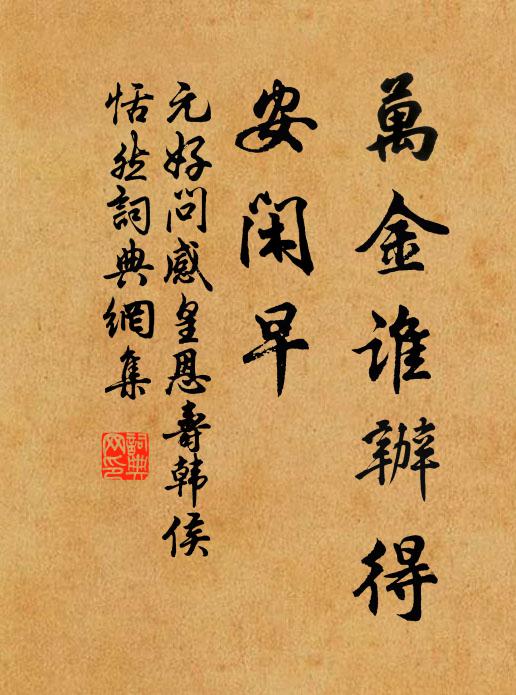 萬金誰辦得
安閑早
元好問感皇恩壽韩侯
恬然詞典網集
詞典
网印